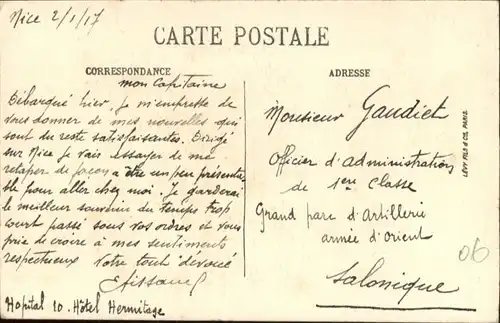 Nice 2/1/17
CARTE POSTALE
CORRESPONDANCE
ADRESSE
mon Capitaine
Débarqué hier, je m'empresse de
vous donner de mes nouvelles qui
sont du reste satisfaisantes. Dirigé
sur Nice je vais essayer de me
retaper de façon à être un peu présenta
ble pour aller chez moi. Je garderai
le meilleur souvenir du temps trop
court passé sous vos ordres et vous
prie de croire à mes sentiments
respectueux Votre tout dévoué
Hopital 10. Hôtel Hermitage
Monsieur Gaudict
Officier d'administration
de 1ere classe
Grand parc d'Artillerie
armée d'orient
Salonique
LÉVY FILS & CIE, PARIS
06